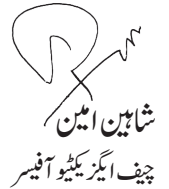 شاہین امین
چیف ایگزیکٹیو آفیسر